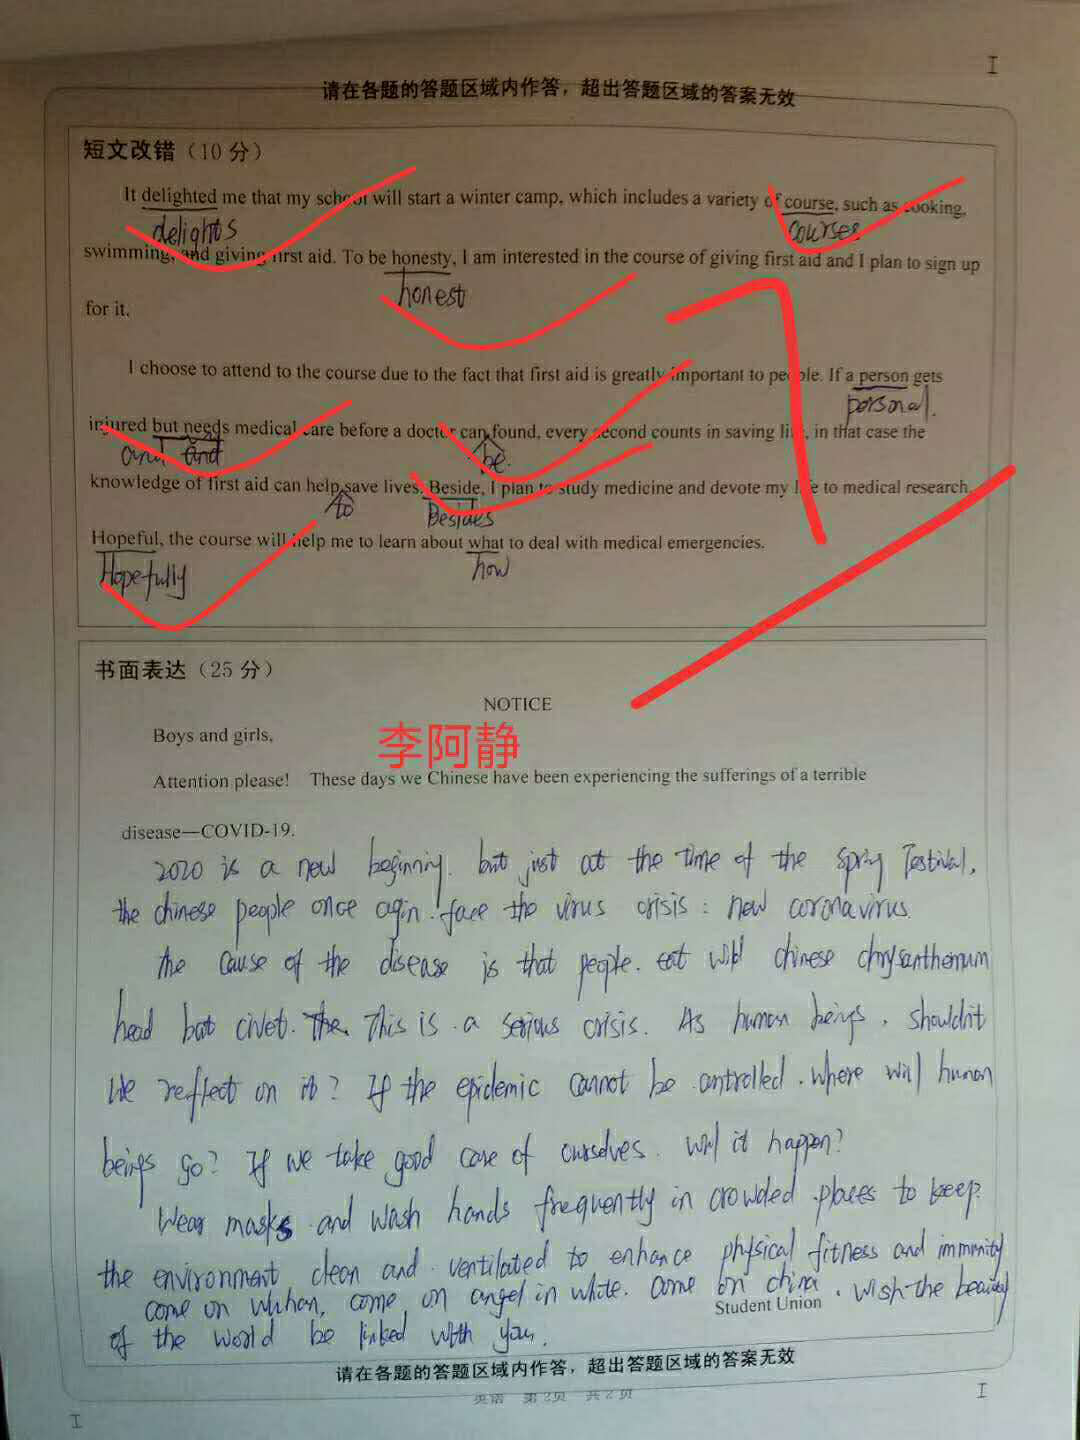 I
请在各题的答题区域内作答，超出答题区域的答案无效
短文改错（10 分）
It delighted me that my school will start a winter camp, which includes a variety of course, such as cooking,
delights courses
swimming, and giving first aid. To be honesty, I am interested in the course of giving first aid and I plan to sign up
honest
for it.
7
I choose to attend to the course due to the fact that first aid is greatly important to people. If a person gets
personal.
injured but needs medical care before a doctor can found, every second counts in saving life, in that case the
and and be.
knowledge of first aid can help save lives. Beside, I plan to study medicine and devote my life to medical research.
to Besides
Hopeful, the course will help me to learn about what to deal with medical emergencies.
Hopefully how
书面表达（25 分）
NOTICE
Boys and girls,
李阿静
Attention please! These days we Chinese have been experiencing the sufferings of a terrible
disease—COVID-19.
2020 is a new beginning. but just at the time of the Spring Festival,
the chinese people once agin. face the virus crisis : new coronavirus.
the cause of the disease is that people. eat wild chinese chrysanthemum
head bat civet. The. This is . a serious crisis. As human beings, shouldn't
we reflect on it? If the epidemic cannot be .controlled. where will human
beings go? If we take good care of ourselves. will it happen?
Wear masks .and wash hands frequently in crowded .places to keep.
the environment clean and . ventilated to enhance physical fitness and immunity
come on wuhan, come on angel in white. come on china . wish the
Student Union
of the world be linked with you.
请在各题的答题区域内作答，超出答题区域的答案无效
英语 第 2页 共 2 页
I
I